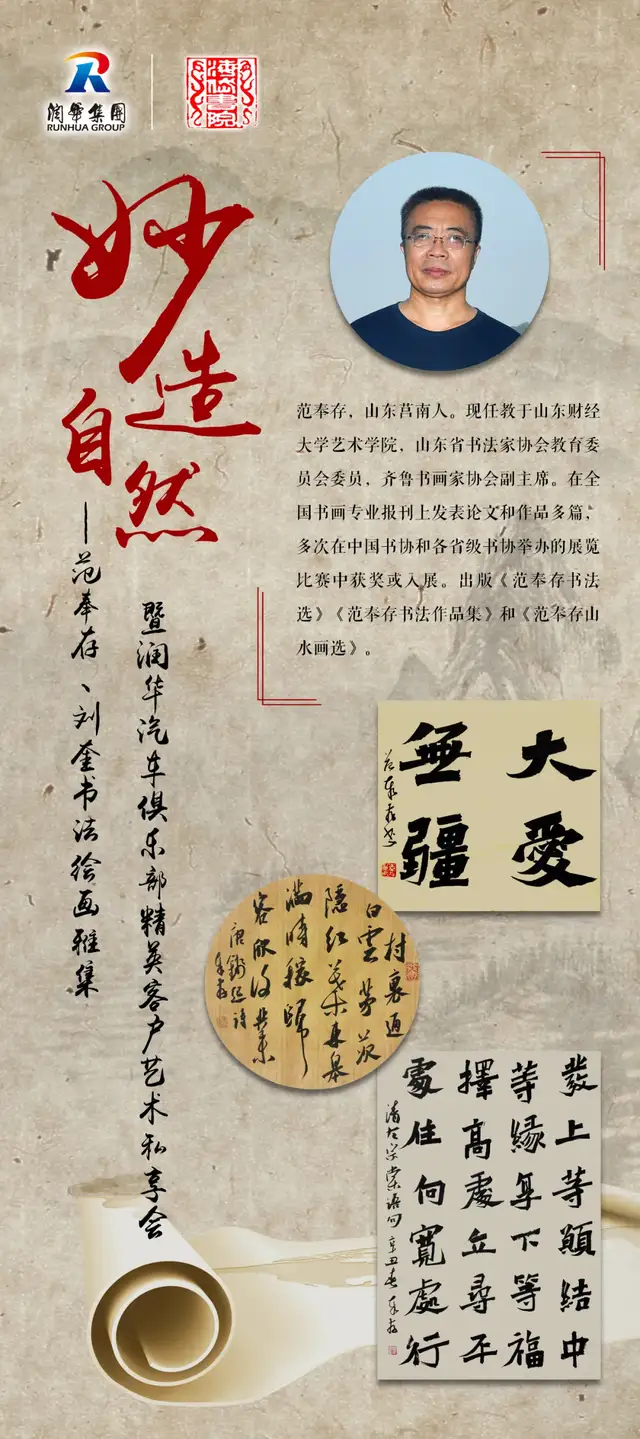 润华集团
RUNHUA GROUP
海岱書院
妙造
自然
——范奉存、刘奎书法绘画雅集
暨润华汽车俱乐部精英客户艺术私享会
范奉存，山东莒南人。现任教于山东财经
大学艺术学院，山东省书法家协会教育委
员会委员，齐鲁书画家协会副主席。在全
国书画专业报刊上发表论文和作品多篇，
多次在中国书协和各省级书协举办的展览
比赛中获奖或入展。出版《范奉存书法
选》《范奉存书法作品集》和《范奉存山
水画选》。
大愛
無疆
村裏通
白雲茅茨
隱紅葉
滿晴
唐錢起詩
奉存
發上等願結中
等緣享下等福
擇高處立尋平
處住向寬處行
清左宗棠語句 辛丑春 奉存